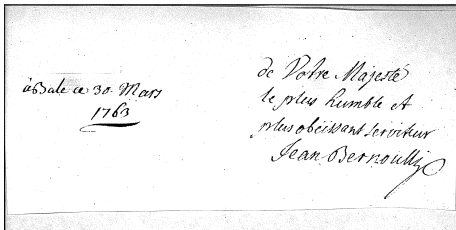 à Bale ce 30 Mars
1763
de Votre Majesté
le plus humble et
plus obéissant serviteur
Jean Bernoulli